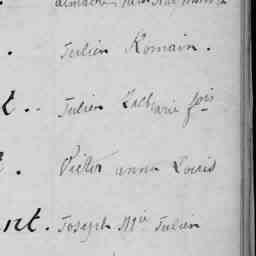 Julien Romain.
t.. Julien Zacharie fois
. Victor anne Louis
nt. Joseph Mie Julien